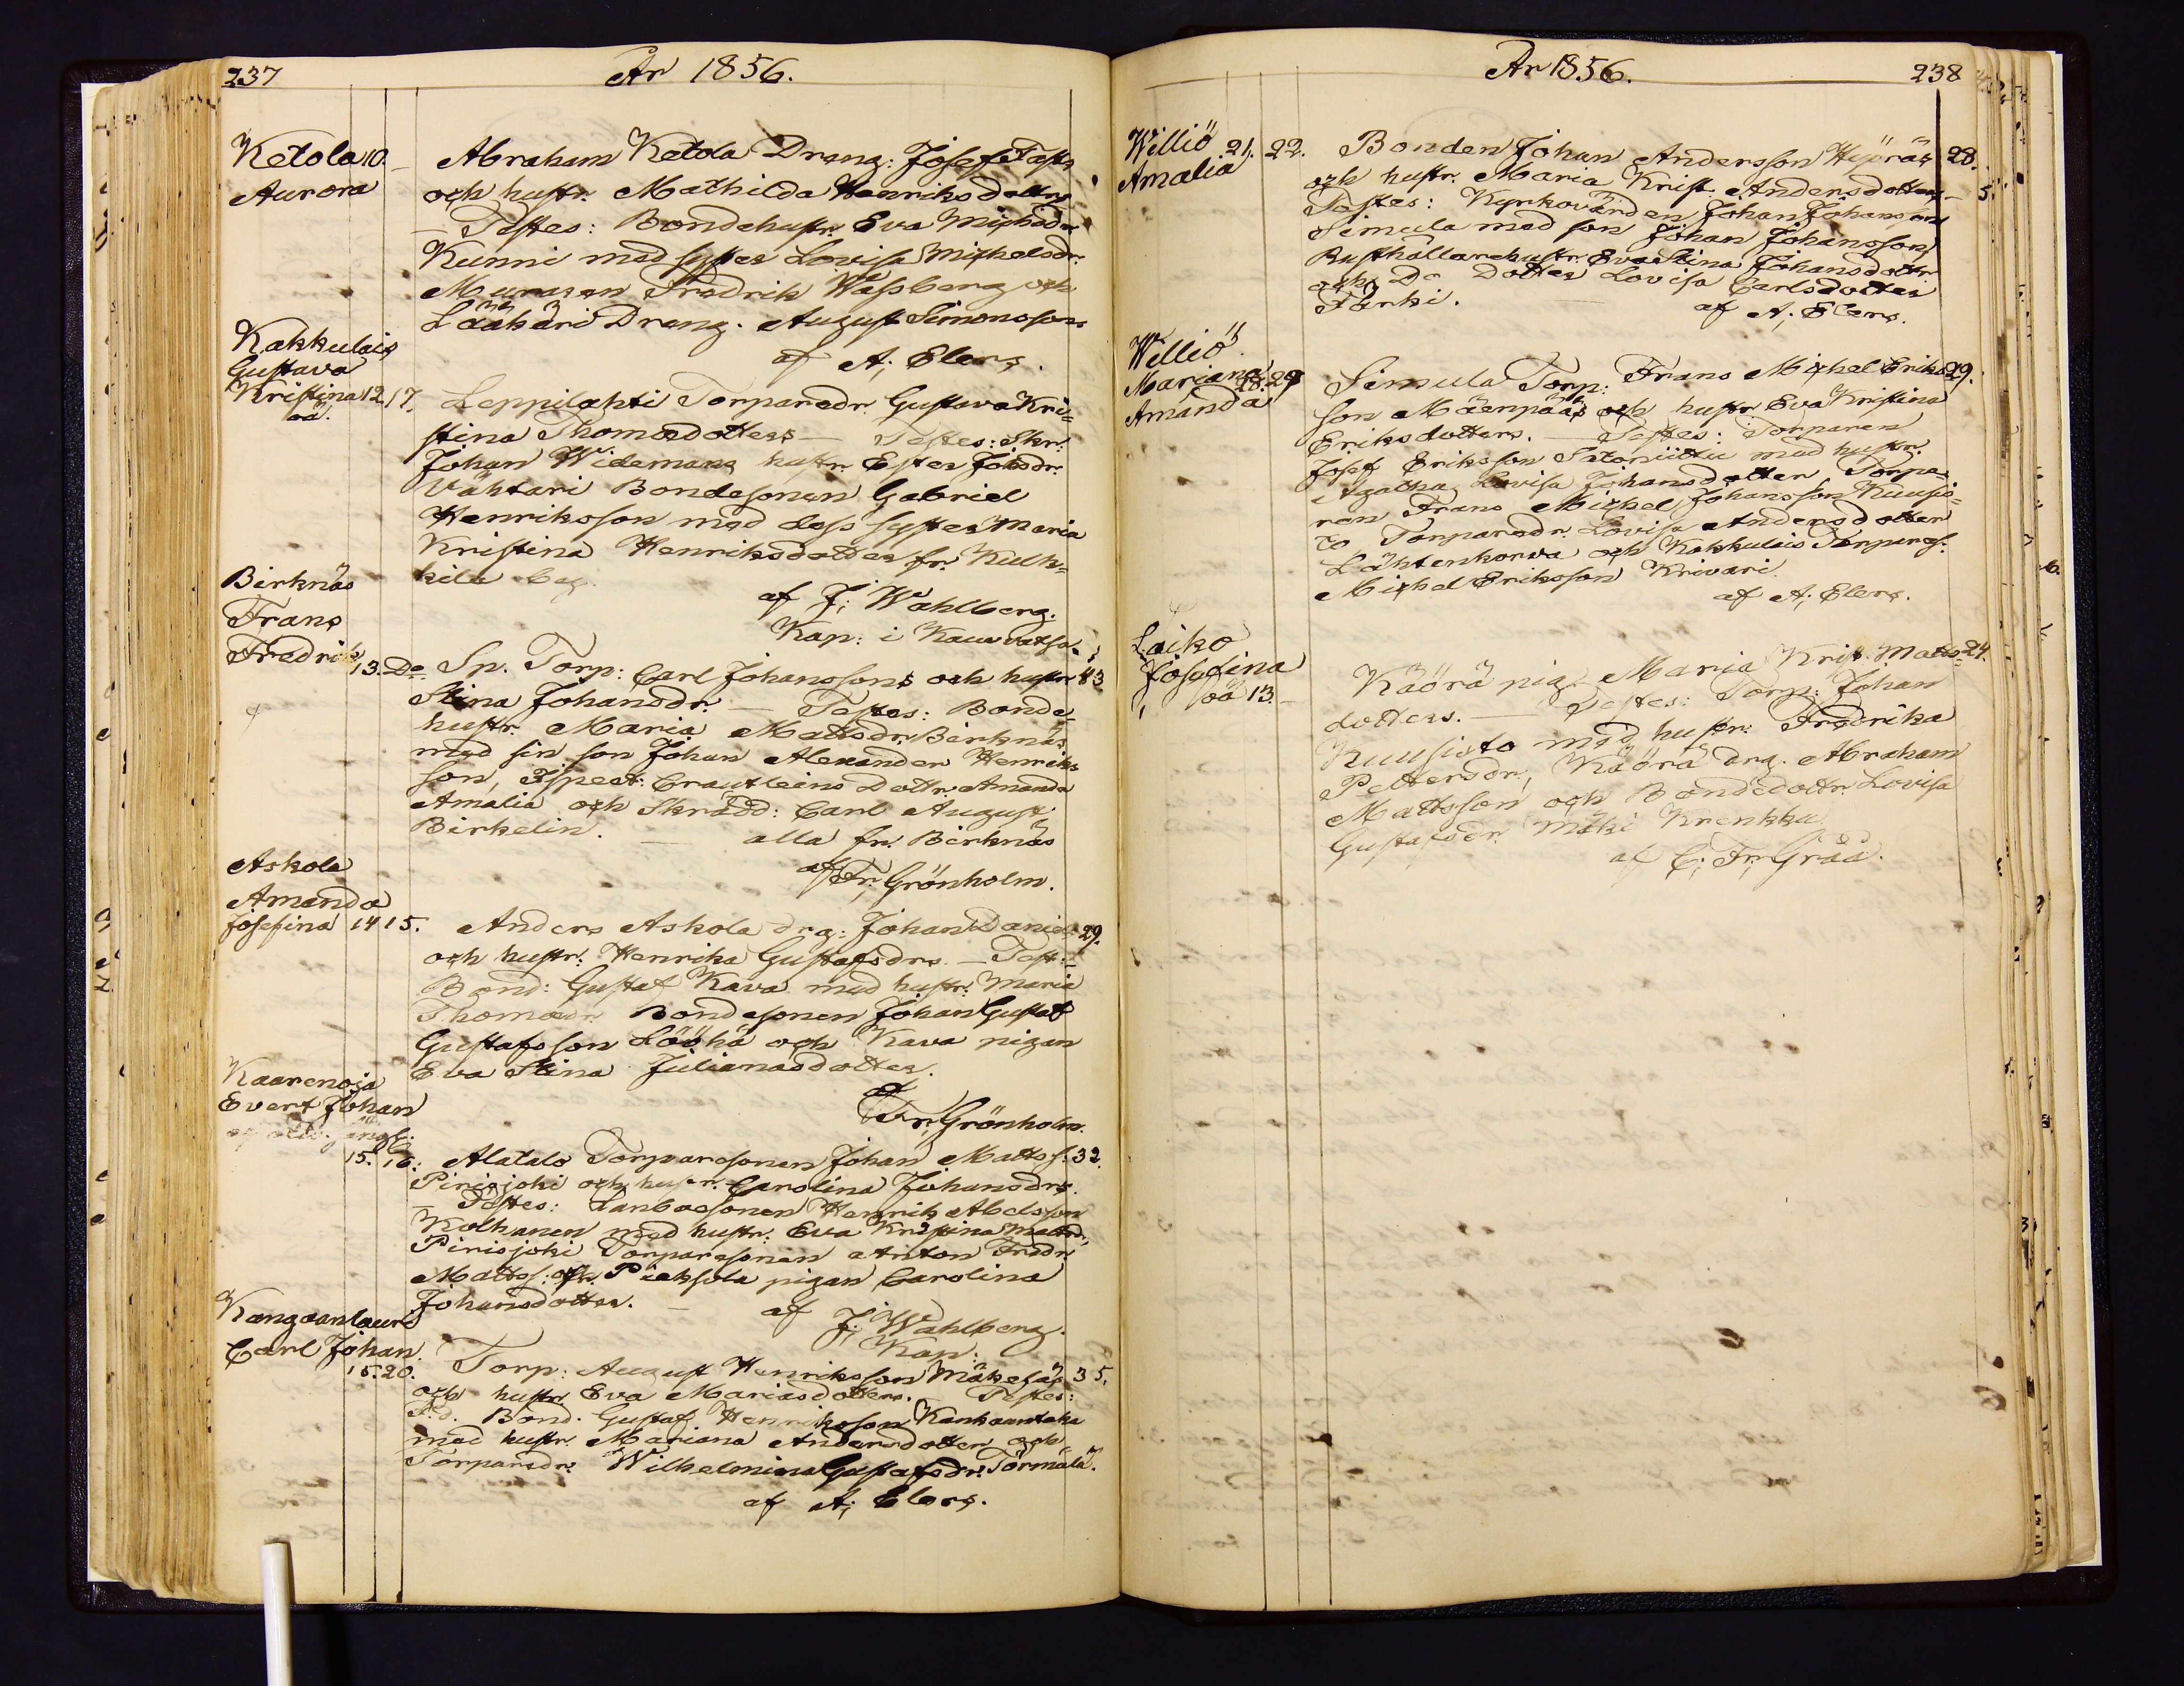 237
År 1856.
Ketola 10. –
Aurora
Abraham Ketola Dräng: Josef
och hustr. Mathilda Henriksdotters
– Testes: Bondehustr. Eva Michelsdr.
Kunni med syster Lovisa Michelsdr.
Muraren Fredrik Wassberg och
Läähäri Dräng. August Simonsson
af A; Elers.
Kakkulais
Gustava
Kristina 12. 17.
oä.
Leppilahti Torparedr. Gustava Kri=
stina Thomasdotters – Testes: Skr:
Johan Widemans hustr. Ester Johsdr.
Vähtari Bondesonen Gabriel
Henriksson med dess syster Maria
Kristina Henriksdotter fr. Kulk=
kila
af J; Wahlberg.
Kap: i Kauvatsa.
Birknäs
Frans
Fredrik 13. Do
Sp. Torp: Carl Johanssons och hustr. 43
Stina Johansdr. – Testes: Bonde=
hustr. Maria Mattsdr. Birknäs
med sin son Johan Alexander Henriks
son, Ispect: Crautleins Dottr. Amanda
Amalia och Skrädd: Carl August
Birkelin. – alla fr. Birknäs
af Fr; Grönholm.
Askola
Amanda
Josefina 14 15.
Anders Askola drg: Johan Daniels. 29.
och hustr. Henrika Gustafsdrs. – Test:
Bond: Gustaf Kava med hustr: Maria
Thomasdr. Bondesonen Johan Gustaf
Gustafsson Lööhä och Kava pigan
Eva Stina Julianasdotter.
af Fr; Grönholm.
Kaarenoja
Evert Johan
15. 16.
Alatalo Torparesonen Johan Mattss. 32.
Pirisjoki och hustr. Carolina Johansdrs.
Testes: Lanbosonen Henrik Abelsson
Kolhanen med hustr. Eva Kristina Mattsdr.
Pirisjoki Torparesonen Anton Fredr.
Mattss: och Pieksola pigan Carolina
Johansdotter. – af J; Wahlberg.
Kap:
Kangaanlauri
Carl Johan
15. 20.
Torp: August Henriksson Mäkeläs 35.
och hustr Eva Mariasdotters. Testes:
F.d. Bond. Gustaf Henriksson Kankaantaka
med hustr. Mariana Andersdotter och
Torparedr. Wilhelmina Gustafsdr. Törmälä.
af A; Elers.
År 1856.
238
Williö 21. 22.
Amalia
Bonden Johan Andersson 28.
och hustr. Maria Krist. Andersdotters – 5.
Testes: Kyrkovärden Johan Johansson
Simula med son Johan Johansson
Rusthållarehustr. Eva Stina Johansdottr
och Do Dotter Lovisa Carlsdotter
Färki.
af A; Elers.
Williö
Mariana 28. 29
Amanda
Simula Torp: Frans Michel Eriks 29.
son Mäenpääs och hustr Eva Kristina
Eriksdotters. – Testes: Torparen
Josef Eriksson Satoniittu med hustr.
Agatha Lovisa Johansdotter Torpa=
ren Frans Michel Johansson Kuusis=
to Torparedr. Lovisa Andersdotter
Lähtenkorva och Kakkulais Torpares.
Michel Eriksson Krivari.
af A; Elers.
Laiko
Josefina
oä 13. –
Käörä pig. Maria Krist. Matts= 24.
dotters. – Testes: Torp: Johan
Kuusisto med hustr: Fredrika
Pettersdr, Käörä drg. Abraham
Mattsson och Bondedottr. Lovisa
Gustafsdr. Mäki Krenkku.
af C; Fr; Gråå.